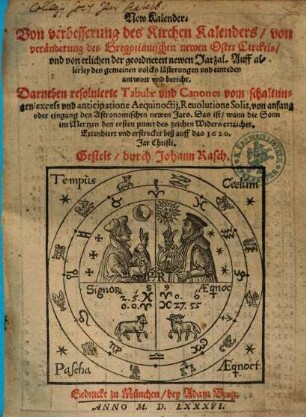 New Kalender.
Von verbesserung des Kirchen Kalenders / von
veränderung des Gregorianischen newen Oster Circkels /
und von etlichen der geordneten newen Jarzal. Auff al-
lerley des gemeinen volcks lästerungen und einreden
antwort und bericht.
Darneben resoluierte Tabulæ und Canones vom schaltun-
gen / excess und anticipatione Aequinoctij, Reuolutione Solis, von anfang
oder eingang des Astronomischen newen Jars. Das ist / wann die Sonn
im Mertzen den ersten punct des zeichen Widers erraichet,
Extendiert und erstreckt biß auff das 1620.
Jar Christi,
Gestelt / durch Johann Rasch.
Tempus
Cœlum
Signor
Æqnoc
Pascha
Æqnoct
Gedruckt zu München / bey Adam Berg.
ANNO M. D. LXXXVI.